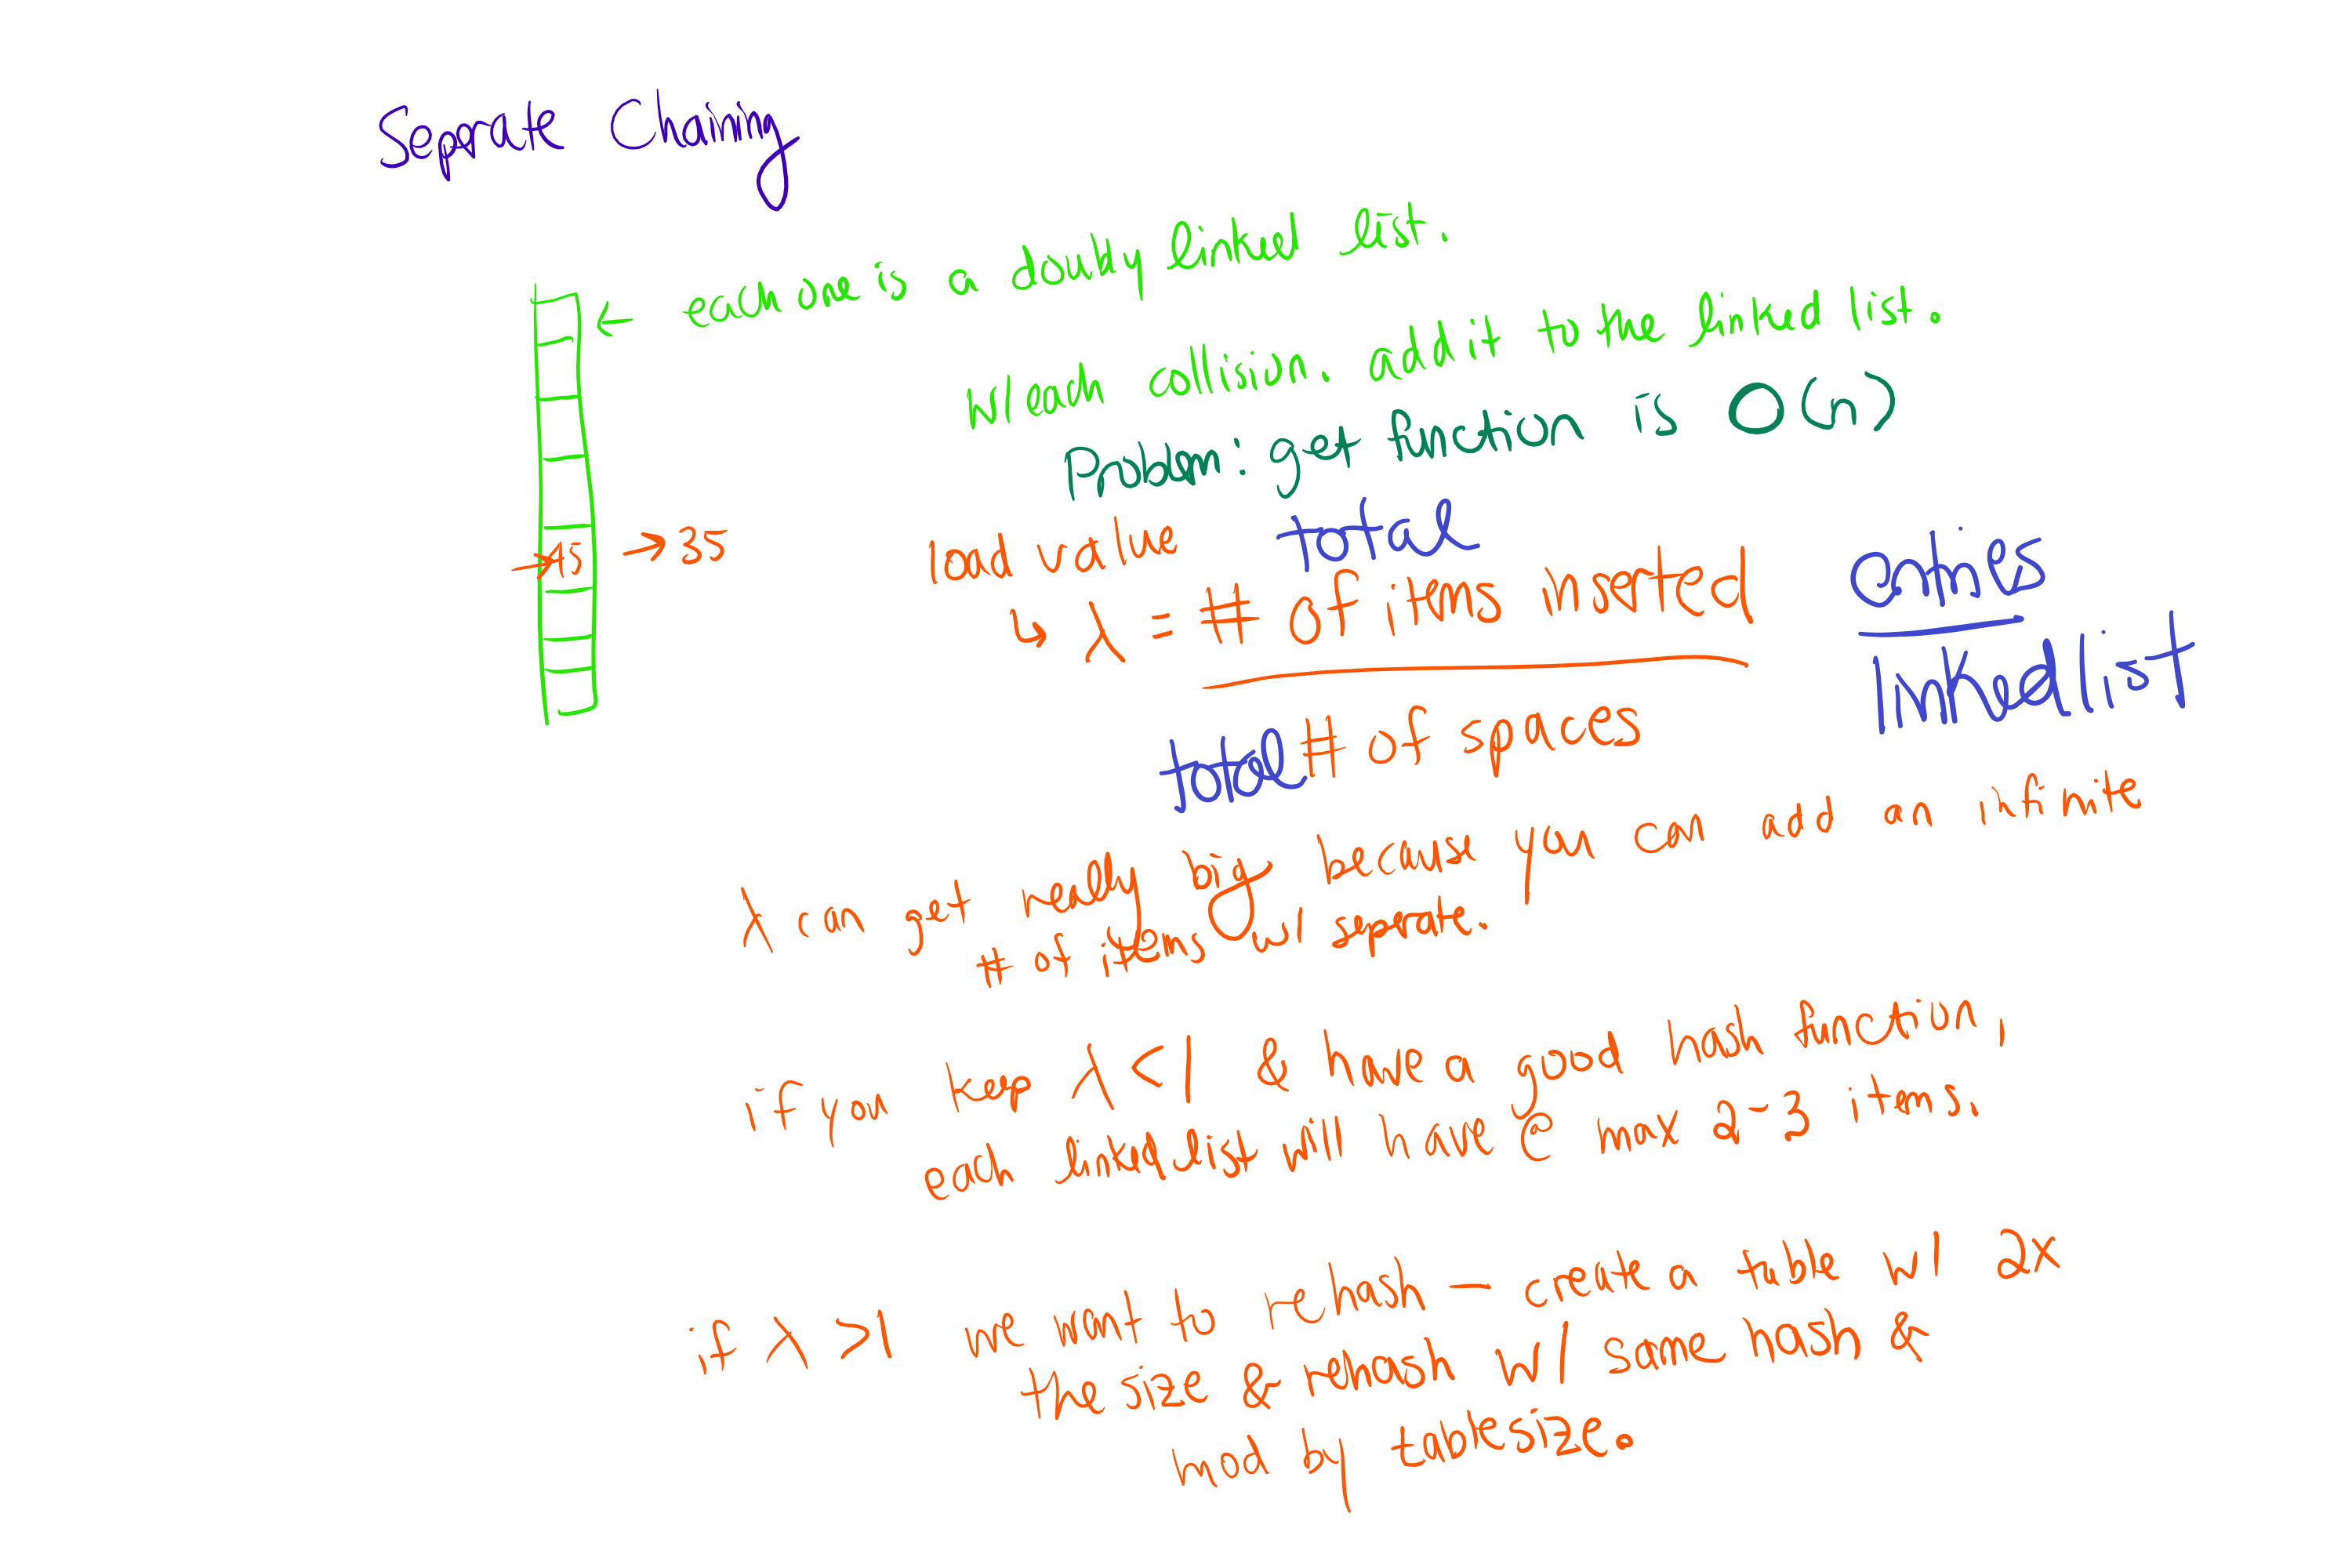 Separate Chaining
← each one is a doubly linked list.
W/ each collision, add it to the linked list.
Problem: get function is O(n)
→ 15 → 35
load value
total
↳ λ = # of items inserted
total # of spaces
entries
linked list
λ can get really big because you can add an infinite
# of items w/ separate.
if you keep λ < 1 & have a good hash function,
each linked list will have @ max 2-3 items.
if λ > 1 we want to rehash — create a table w/ 2x
the size & rehash w/ same hash &
mod by tablesize.